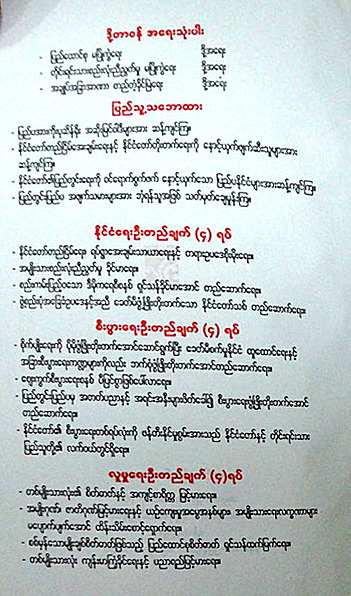 ဒို့တာဝန် အရေးသုံးပါး
- ပြည်ထောင်စု မပြိုကွဲရေး ဒို့အရေး
- တိုင်းရင်းသားစည်းလုံးညီညွတ်မှု မပြိုကွဲရေး ဒို့အရေး
- အချုပ်အခြာအာဏာ တည်တံ့ခိုင်မြဲရေး ဒို့အရေး
ပြည်သူ့သဘောထား
- ပြည်ပအားကိုးပုဆိန်ရိုး အဆိုးမြင်ဝါဒီများအား ဆန့်ကျင်ကြ။
- နိုင်ငံတော်တည်ငြိမ်အေးချမ်းရေးနှင့် နိုင်ငံတော်တိုးတက်ရေးကို နှောင့်ယှက်ဖျက်ဆီးသူများအား
ဆန့်ကျင်ကြ။
- နိုင်ငံတော်၏ပြည်တွင်းရေးကို ဝင်ရောက်စွက်ဖက် နှောင့်ယှက်သော ပြည်ပနိုင်ငံများအားဆန့်ကျင်ကြ။
- ပြည်တွင်းပြည်ပ အဖျက်သမားများအား ဘုံရန်သူအဖြစ် သတ်မှတ်ချေမှုန်းကြ။
နိုင်ငံရေးဦးတည်ချက် (၄) ရပ်
- နိုင်ငံတော်တည်ငြိမ်ရေး၊ ရပ်ရွာအေးချမ်းသာယာရေးနှင့် တရားဥပဒေစိုးမိုးရေး။
- အမျိုးသားစည်းလုံးညီညွတ်မှု ခိုင်မာရေး။
- စည်းကမ်းပြည့်ဝသော ဒီမိုကရေစီစနစ် ရှင်သန်ခိုင်မာအောင် တည်ဆောက်ရေး။
- ဖွဲ့စည်းပုံအခြေခံဥပဒေနှင့်အညီ ခေတ်မီဖွံ့ဖြိုးတိုးတက်သော နိုင်ငံတော်သစ် တည်ဆောက်ရေး။
စီးပွားရေးဦးတည်ချက် (၄) ရပ်
- စိုက်ပျိုးရေးကို ပိုမိုဖွံ့ဖြိုးတိုးတက်အောင်ဆောင်ရွက်ပြီး ခေတ်မီစက်မှုနိုင်ငံ ထူထောင်ရေးနှင့်
အခြားစီးပွားရေးကဏ္ဍများကိုလည်း ဘက်စုံဖွံ့ဖြိုးတိုးတက်အောင်တည်ဆောက်ရေး။
- ဈေးကွက်စီးပွားရေးစနစ် ပီပြင်စွာဖြစ်ပေါ်လာရေး။
- ပြည်တွင်းပြည်ပမှ အတတ်ပညာနှင့် အရင်းအနှီးများဖိတ်ခေါ်၍ စီးပွားရေးဖွံ့ဖြိုးတိုးတက်အောင်
တည်ဆောက်ရေး။
- နိုင်ငံတော်၏ စီးပွားရေးတစ်ရပ်လုံးကို ဖန်တီးနိုင်မှုစွမ်းအားသည် နိုင်ငံတော်နှင့် တိုင်းရင်းသား
ပြည်သူတို့၏ လက်ဝယ်တွင်ရှိရေး။
လူမှုရေးဦးတည်ချက် (၄)ရပ်
- တစ်မျိုးသားလုံး၏ စိတ်ဓာတ်နှင့် အကျင့်စာရိတ္တ မြင့်မားရေး။
- အမျိုးဂုဏ် ဇာတိဂုဏ်မြင့်မားရေးနှင့် ယဉ်ကျေးမှုအမွေအနှစ်များ၊ အမျိုးသားရေးလက္ခဏာများ
မပျောက်ပျက်အောင် ထိန်းသိမ်းစောင့်ရှောက်ရေး။
- စစ်မှန်သောမျိုးချစ်စိတ်ဓာတ်ဖြစ်သည့် ပြည်ထောင်စုစိတ်ဓာတ် ရှင်သန်ထက်မြက်ရေး။
- တစ်မျိုးသားလုံး ကျန်းမာကြံ့ခိုင်ရေးနှင့် ပညာရည်မြင့်မားရေး။